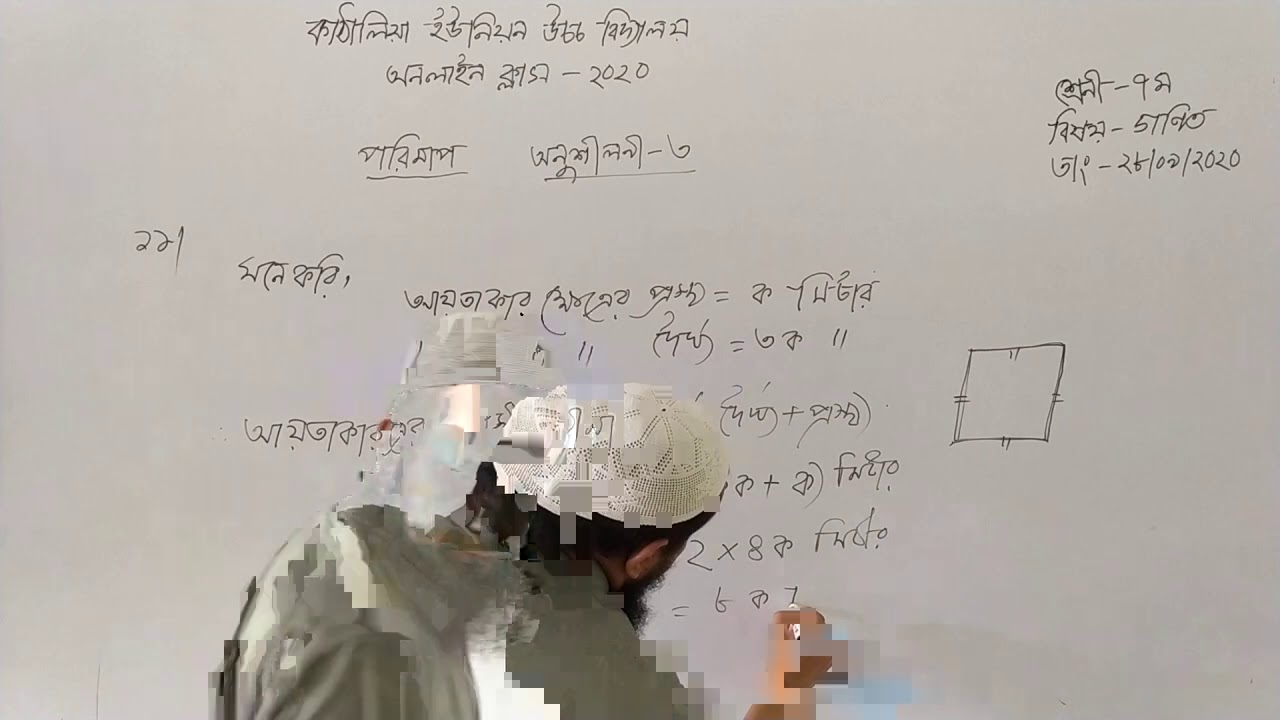 কাঠালিয়া ইউনিয়ন উচ্চ বিদ্যালয়
অনলাইন ক্লাস - ২০২০
শ্রেনী - ৭ম
বিষয় - গণিত
তাং - ২৮/০৯/২০২০
পরিমাপ অনুশীলনী-৩
২১।
মনে করি,
আয়তাকার ক্ষেত্রের প্রস্থ = ক মিটার
" " দৈর্ঘ্য = ৩ক "
আয়তাকার দৈর্ঘ্য + প্রস্থ)
ক + ক) মিটার
2 × ৪ক মিটার
= ৮ ক